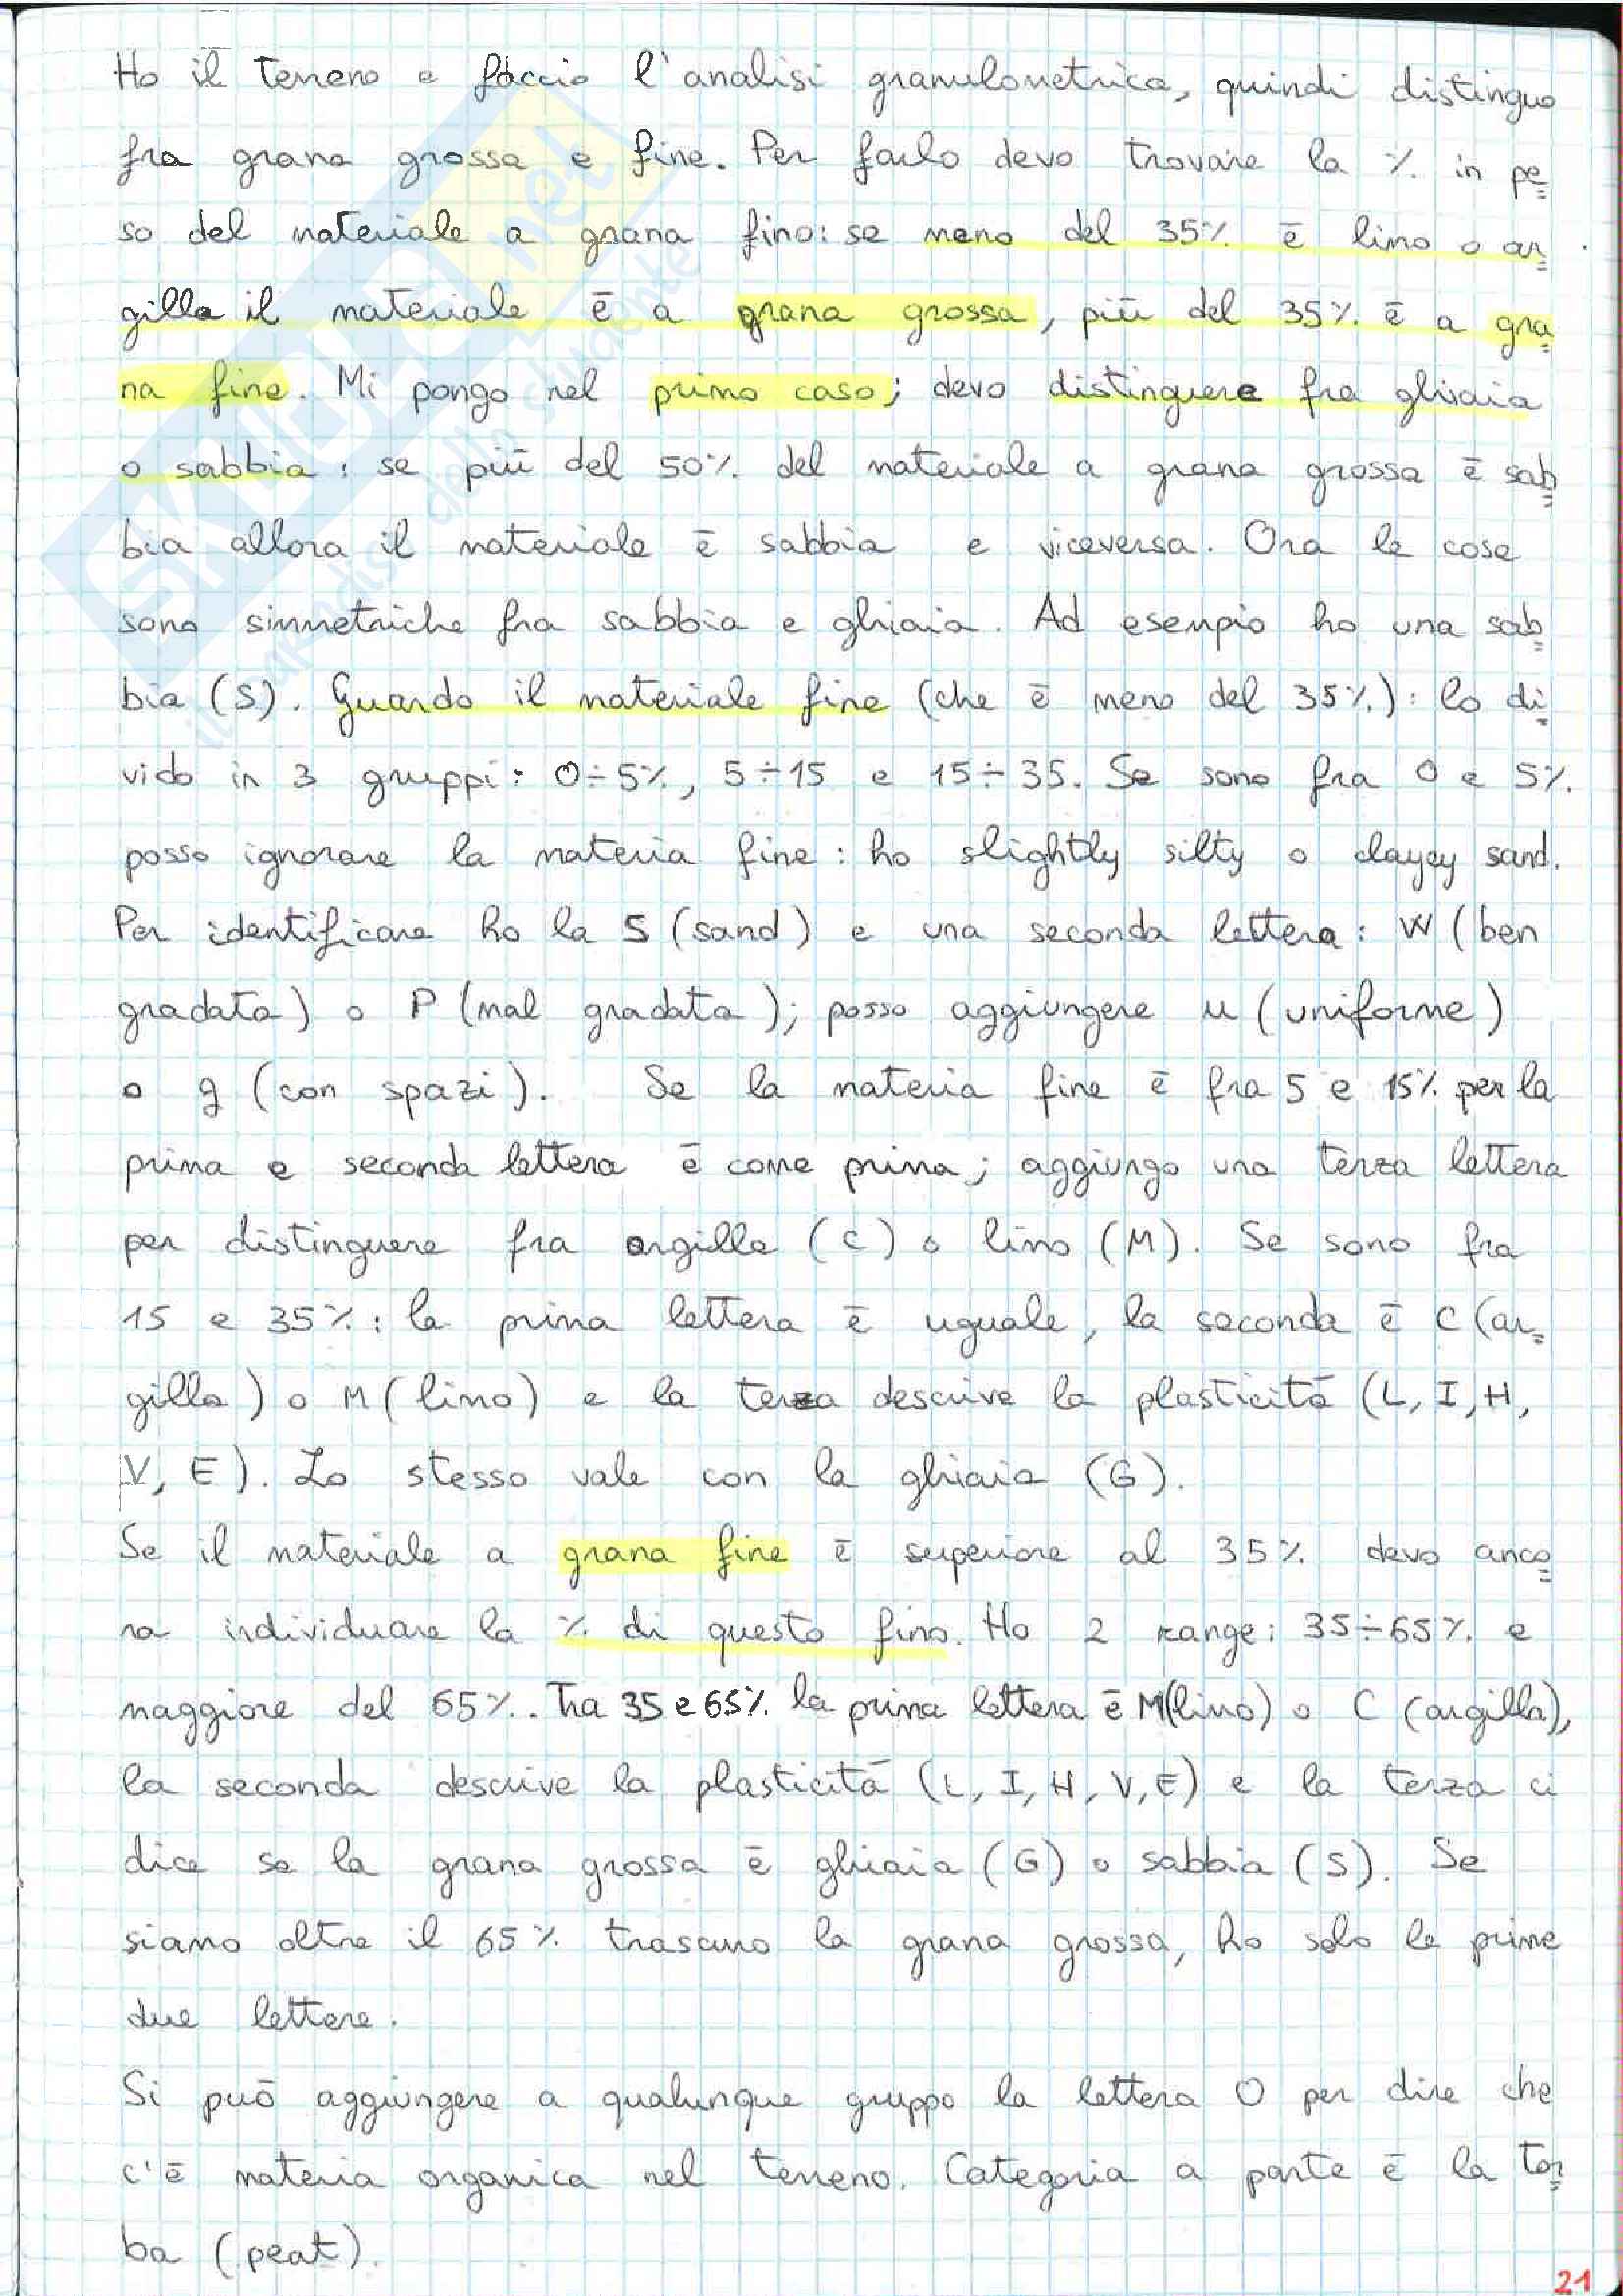 Ho il terreno e faccio l'analisi granulometrica, quindi distinguo
fra grana grossa e fine. Per farlo devo trovare la % in pe=
so del materiale a grana fino: se meno del 35% è limo o ar=
gilla il materiale è a grana grossa, più del 35% è a gra=
na fine. Mi pongo nel primo caso; devo distinguere fra ghiaia
o sabbia: se più del 50% del materiale a grana grossa è sab=
bia allora il materiale è sabbia e viceversa. Ora le cose
sono simmetriche fra sabbia e ghiaia. Ad esempio ho una sab=
bia (S). Guardo il materiale fine (che è meno del 35%): lo di=
vido in 3 gruppi: 0÷5%, 5÷15 e 15÷35. Se sono fra 0 e 5%
posso ignorare la materia fine: ho slightly silty o clayey sand.
Per identificare ho la S (sand) e una seconda lettera: W (ben
gradata) o P (mal gradata); posso aggiungere u (uniforme)
o g (con spazi). Se la materia fine è fra 5 e 15% per la
prima e seconda lettera è come prima; aggiungo una terza lettera
per distinguere fra argilla (C) o limo (M). Se sono fra
15 e 35%: la prima lettera è uguale, la seconda è C (ar=
gilla) o M (limo) e la terza descrive la plasticità (L, I, H,
V, E). Lo stesso vale con la ghiaia (G).
Se il materiale a grana fine è superiore al 35% devo anco=
ra individuare la % di questo fino. Ho 2 range: 35÷65% e
maggiore del 65%. Tra 35 e 65% la prima lettera è M(limo) o C (argilla),
la seconda descrive la plasticità (L, I, H, V, E) e la terza ci
dice se la grana grossa è ghiaia (G) o sabbia (S). Se
siamo oltre il 65% trascuro la grana grossa, ho solo le prime
due lettere.
Si può aggiungere a qualunque gruppo la lettera O per dire che
c'è materia organica nel terreno. Categoria a parte è la tor=
ba (peat).
21
SKUOLA.net
il paradiso dello studente